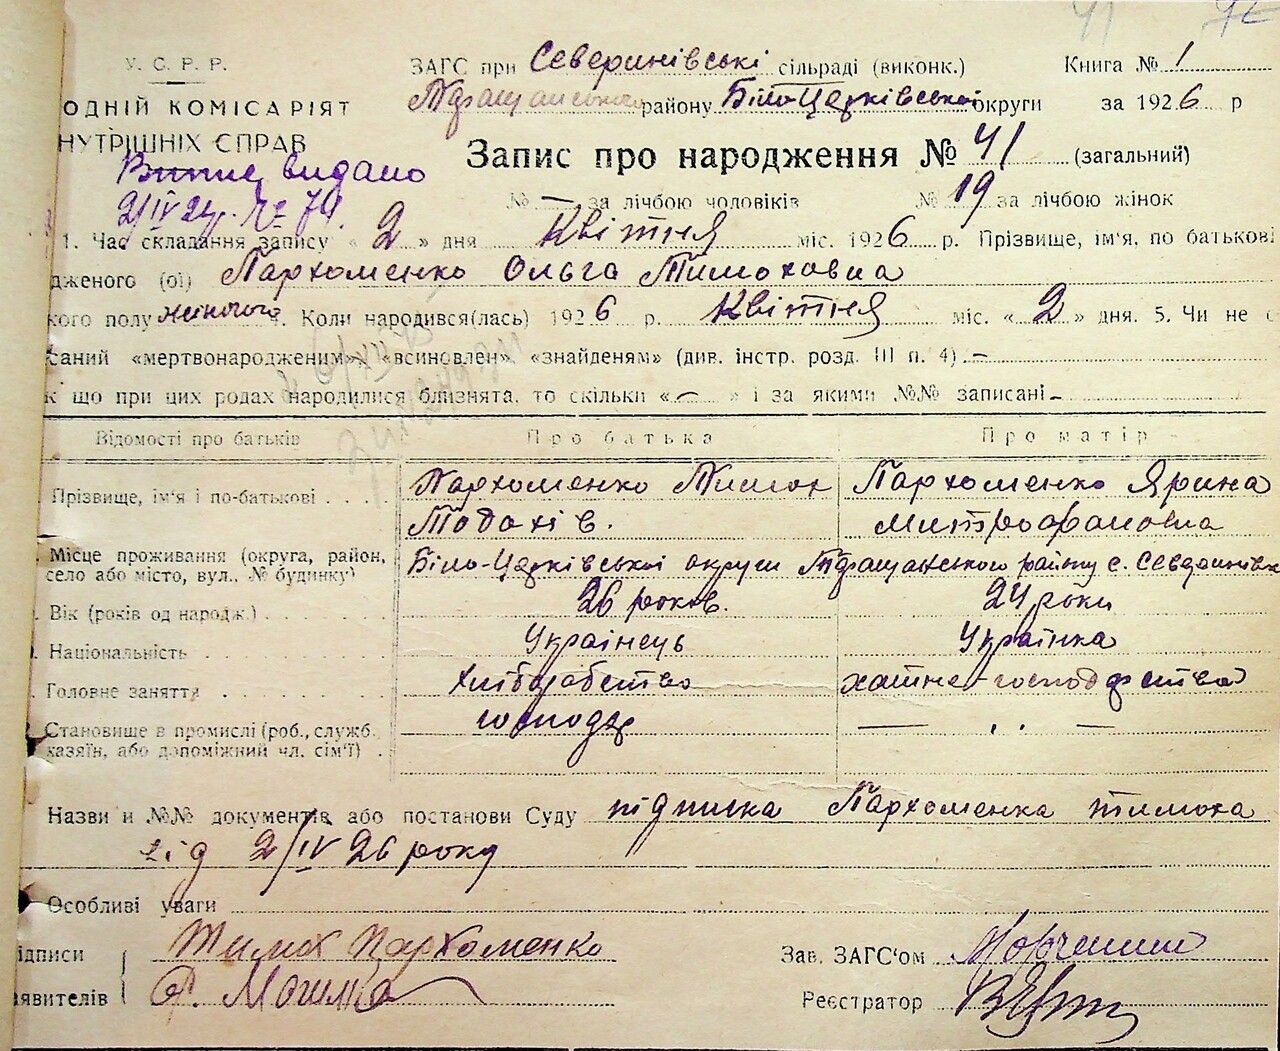 У. С. Р. Р.
ОДНІЙ КОМІСАРІЯТ
НУТРІШНІХ СПРАВ
ЗАГС при Северинівські сільраді (виконк.) Книга № 1
району Біло-Церківської округи за 1926 р
Запис про народження № 41 (загальний)
видано
№ — за лічбою чоловіків № 19 за лічбою жінок
1. Час складання запису « 2 » дня Квітня міс. 1926 р. Прізвище, ім'я, по батькові
дженого (ої) Пархоменко Ольга Тимоховна
кого полу жиночого. Коли народився(лась) 1926 р. Квітня міс. « 2 » дня. 5. Чи не с
саний «мертвонародженим», «всиновлен», «знайденям» (див. інстр. розд. III п. 4) —
к що при цих родах народилися близнята, то скільки « — » і за якими №№ записані —
Відомості про батьків Про батька Про матір
Прізвище, ім'я і по-батькові Пархоменко Тимох Пархоменко Ярина
Тодохів. Митрофановна
Місце проживання (округа, район, село або місто, вул., № будинку) Біло-Церківської округи району с. Северинівка
Вік (років од народж.) 26 років. 24 роки
Національність Українець Українка
Головне заняття Хліборобство хатне-господарство
Становище в промислі (роб., служб. хазяїн, або допоміжний чл. сім'ї) господар — „ —
Назви и №№ документів або постанови Суду підписка Пархоменка тимоха
від 2/IV 26 року
Особливі уваги
ідписи Тимох Пархоменко Зав. ЗАГС'ом
аявителів Реєстратор